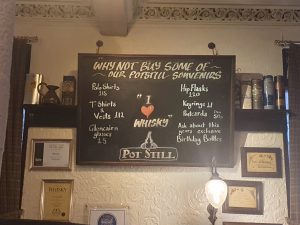 WHY NOT BUY SOME OF
OUR POTSTILL SOUVENIRS
Polo Shirts
£15
T Shirts
Vests £12
Glencairn
glasses
£5
"I
WHISKY"
POT STILL
Hip Flasks
£20
Keyrings £1
Postcards
50p
Ask about this
years exclusive
Birthday Bottles
WHISKY